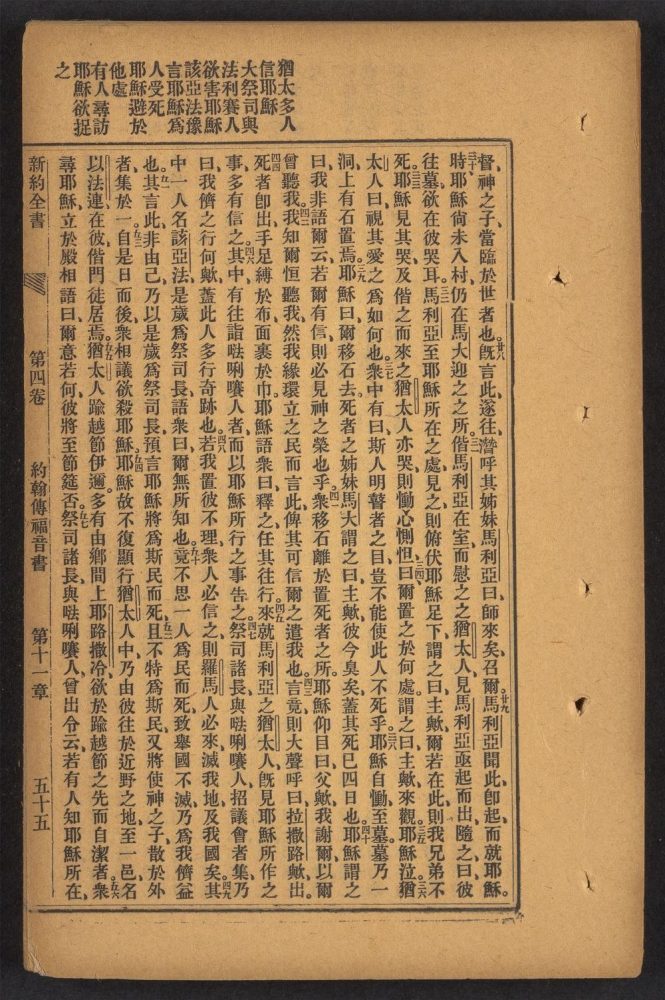 猶太多人
信耶穌
大祭司與
法利賽人
欲害耶穌
該亞法豫
言耶穌爲
人受死
耶穌避於
他處
有人尋訪
耶穌欲捉
之
督、神之子、當臨於世者也。廿八既言此、遂往、潛呼其姊妹馬利亞曰、師來矣、召爾。廿九馬利亞聞此、卽起而就耶穌。
三十時耶穌尙未入村、仍在馬大迎之之所。三一偕馬利亞在室、而慰之之猶太人、見馬利亞亟起而出、隨之曰、彼
往墓、欲在彼哭耳。三二馬利亞至耶穌所在之處、見之、則俯伏耶穌足下、謂之曰、主歟、爾若在此、則我兄弟不
死。三三耶穌見其哭、及偕之而來之猶太人亦哭、則慟心惻怛、三四曰、爾置之於何處、謂之曰、主歟、來觀。三五耶穌泣。三六猶
太人曰、視其愛之爲如何也。三七衆中有曰、斯人明瞽者之目、豈不能使此人不死乎。三八耶穌自慟、至墓、墓乃一
洞、上有石置焉。三九耶穌曰、爾移石去。死者之姊妹馬大謂之曰、主歟、彼今臭矣、蓋其死已四日也。四十耶穌謂之
曰、我非語爾云、若爾有信、則必見神之榮也乎。四一衆移石離於置死者之所。耶穌仰目曰、父歟、我謝爾、以爾
曾聽我。四二我知爾恒聽我、然我緣環立之民而言此、俾其可信爾之遣我也。四三言竟、則大聲呼曰、拉撒路歟、出。
四四死者卽出、手足縛於布、面裹於巾。耶穌語衆曰、釋之、任其往行。四五來就馬利亞之猶太人、既見耶穌所作之
事、多有信之。四六其中有往詣𠵽唎嚔人者、而以耶穌所行之事告之。四七祭司諸長、與𠵽唎嚔人、招議會者集、乃
曰、我儕之行何歟、蓋此人多行奇跡也。四八若我置彼不理、衆人必信之、則羅馬人必來、滅我地及我國矣。四九其
中一人名該亞法、是歲爲祭司長、語衆曰、爾無所知也、五十竟不思一人爲民而死、致舉國不滅、乃爲我儕益
也。五一其言此、非由己、乃以是歲爲祭司長、預言耶穌將爲斯民而死、五二且不特爲斯民、又將使神之子散於外
者、集於一。五三自是日而後、衆相議欲殺耶穌。五四耶穌故不復顯行猶太人中、乃由彼往於近野之地、至一邑名
以法連、在彼偕門徒居焉。五五猶太人踰越節伊邇、多有由鄉間上耶路撒冷、欲於踰越節之先而自潔者。五六衆
尋耶穌、立於殿相語曰、爾意若何、彼將至節筵否。五七祭司諸長、與𠵽唎嚔人、曾出令云、若有人知耶穌所在、
新約全書 第四卷 約翰傳福音書 第十一章 五十五